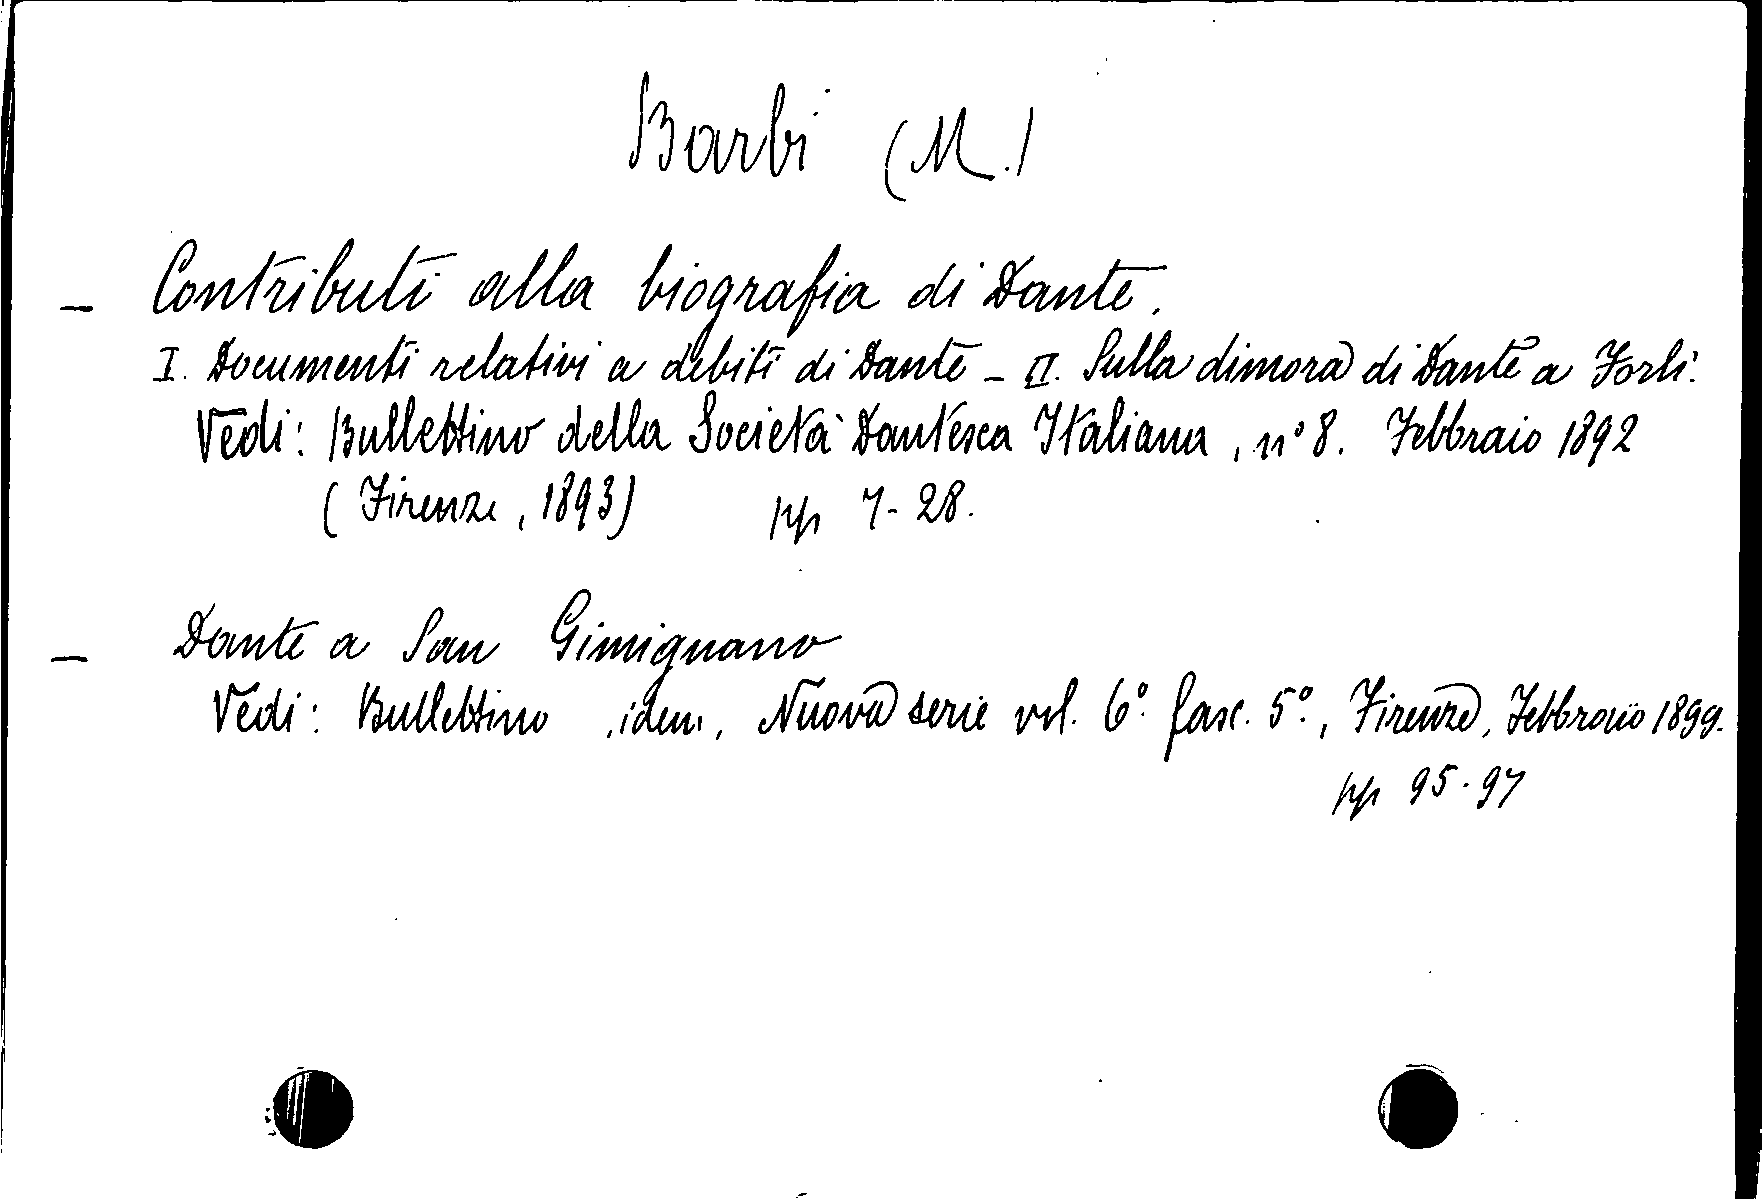 Barbi (M.)
– Contributi alla biografia di Dante.
I. Documenti relativi a debiti di Dante – II. Sulla dimora di Dante a Forlì.
Vedi: Bullettino della Società Dantesca Italiana, n° 8. Febbraio 1892
(Firenze, 1893) pp 7-28.
– Dante a San Gimignano
Vedi: Bullettino idem, Nuova serie vol. 6°. fasc. 5°., Firenze, Febbraio 1899.
pp 95-97